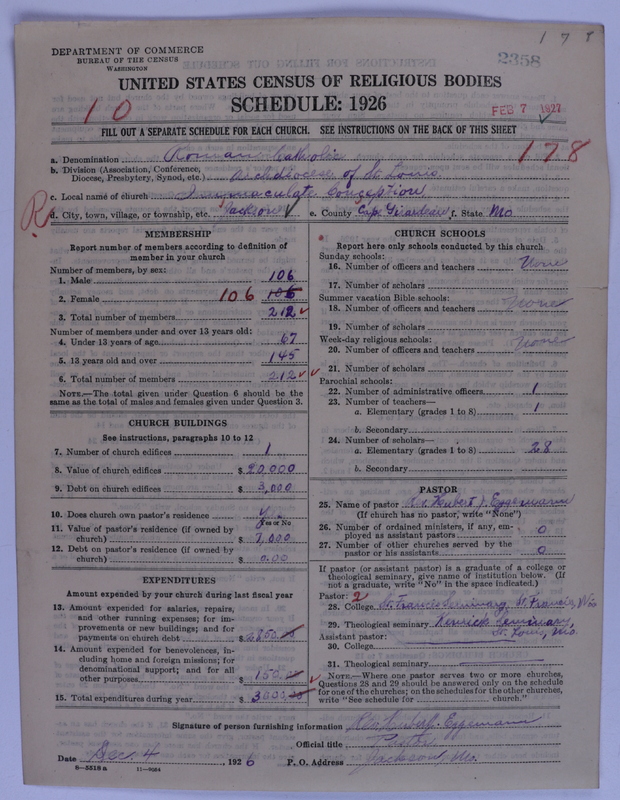 178
DEPARTMENT OF COMMERCE
BUREAU OF THE CENSUS
WASHINGTON
2358
UNITED STATES CENSUS OF RELIGIOUS BODIES
SCHEDULE: 1926
10
FEB 7 1927
FILL OUT A SEPARATE SCHEDULE FOR EACH CHURCH. SEE INSTRUCTIONS ON THE BACK OF THIS SHEET
178
a. Denomination Roman Catholic
b. Division (Association, Conference, Diocese, Presbytery, Synod, etc.) Archdiocese of St. Louis
c. Local name of church Immaculate Conception
R
d. City, town, village, or township, etc. Jackson e. County Cape Girardeau f. State Mo.
MEMBERSHIP
Report number of members according to definition of
member in your church
Number of members, by sex:
1. Male 106
2. Female 106 106
3. Total number of members 212
Number of members under and over 13 years old:
4. Under 13 years of age 67
5. 13 years old and over 145
6. Total number of members 212
NOTE.—The total given under Question 6 should be
same as the total of males and females given under Question 3.
CHURCH BUILDINGS
See instructions, paragraphs 10 to 12
7. Number of church edifices 1
8. Value of church edifices $20,000
9. Debt on church edifices $3,000
10. Does church own pastor's residence
Yes or No
11. Value of pastor's residence (if owned by
church) $7,000
12. Debt on pastor's residence (if owned by
church) $0.00
EXPENDITURES
Amount expended by your church during last fiscal year
13. Amount expended for salaries, repairs,
and other running expenses; for im-
provements or new buildings; and for
payments on church debt $2850.00
14. Amount expended for benevolences, in-
cluding home and foreign missions; for
denominational support; and for all
other purposes $150.00
15. Total expenditures during year $3000.00
CHURCH SCHOOLS
Report here only schools conducted by this church
Sunday schools:
16. Number of officers and teachers None
17. Number of scholars
Summer vacation Bible schools:
18. Number of officers and teachers None
19. Number of scholars
Week-day religious schools:
20. Number of officers and teachers None
21. Number of scholars
Parochial schools:
22. Number of administrative officers 1
23. Number of teachers—
a. Elementary (grades 1 to 8) 1
b. Secondary
24. Number of scholars—
a. Elementary (grades 1 to 8) 28
b. Secondary
PASTOR
25. Name of pastor Rev. Hubert J. Eggemann
(If church has no pastor, write "None")
26. Number of ordained ministers, if any, em-
ployed as assistant pastors 0
27. Number of other churches served by the
pastor or his assistants 0
If pastor (or assistant pastor) is a graduate of a college or
theological seminary, give name of institution below. (If
not a graduate, write "No" in the space indicated.)
Pastor: 2
28. College St. Francis Seminary, St. Francis, Wis
29. Theological seminary Kenrick Seminary,
St. Louis, Mo.
Assistant pastor:
30. College
31. Theological seminary
NOTE.—Where one pastor serves two or more churches,
Questions 28 and 29 should be answered only on the schedule
for one of the churches; on the schedules for the other churches,
write "See schedule for church."
Signature of person furnishing information Rev. Hubert J. Eggemann
Official title Pastor
Date Dec. 4, 1926 P. O. Address Jackson, Mo.
8—5518 a 11—9064